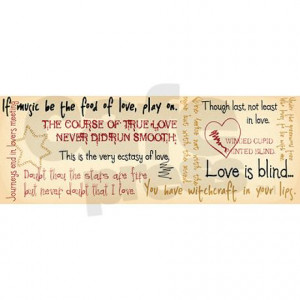 If music be the food of love, play on.
THE COURSE OF TRUE LOVE
NEVER DID RUN SMOOTH;
This is the very ecstasy of love,
Doubt thou the stars are fire,
but never doubt that I love.
Journeys end in lovers meeting
Though last, not least
in love.
WINGED CUPID
PAINTED BLIND
Love is blind...
You have witchcraft in your lips.